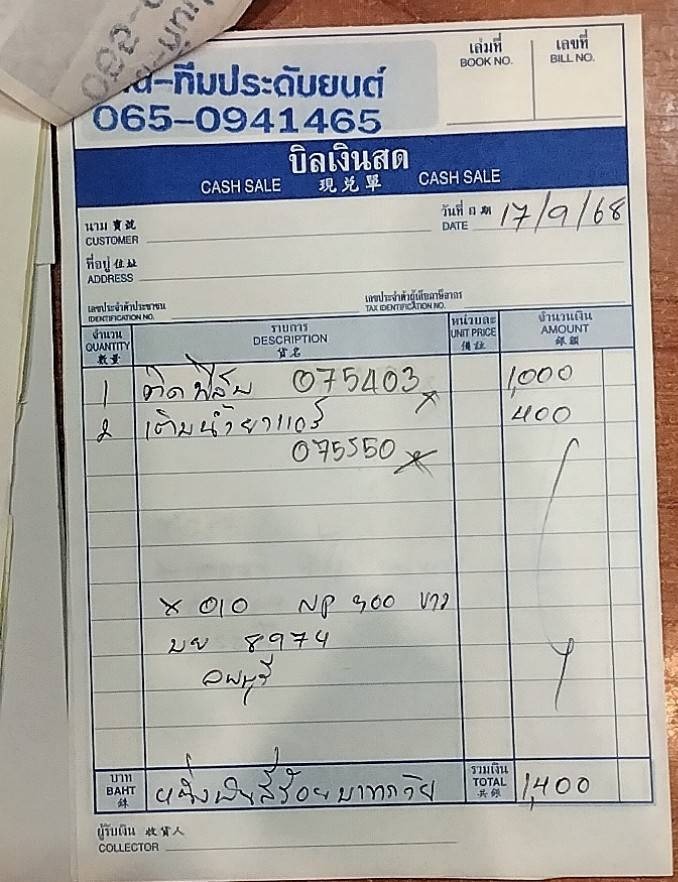 -ทีมประดับยนต์
065-0941465
เล่มที่
BOOK NO.
เลขที่
BILL NO.
บิลเงินสด
CASH SALE 現兌單 CASH SALE
นาม 寶號
CUSTOMER
วันที่ 日期
DATE 17/9/68
ที่อยู่ 住址
ADDRESS
เลขประจำตัวประชาชน
IDENTIFICATION NO.
เลขประจำตัวผู้เสียภาษีอากร
TAX IDENTIFICATION NO.
จำนวน
QUANTITY
數量
รายการ
DESCRIPTION
貨名
หน่วยละ
UNIT PRICE
價註
จำนวนเงิน
AMOUNT
銀額
1 ติดฟิล์ม 075403 x 1,000
2 เติมน้ำยาแอร์ 400
075550 x
x 010 NP 300 บาท
บย 8974
ลพบุรี
บาท
BAHT
銖
หนึ่งพันสี่ร้อยบาทถ้วย
รวมเงิน
TOTAL
共銀
1,400
ผู้รับเงิน 收貨人
COLLECTOR